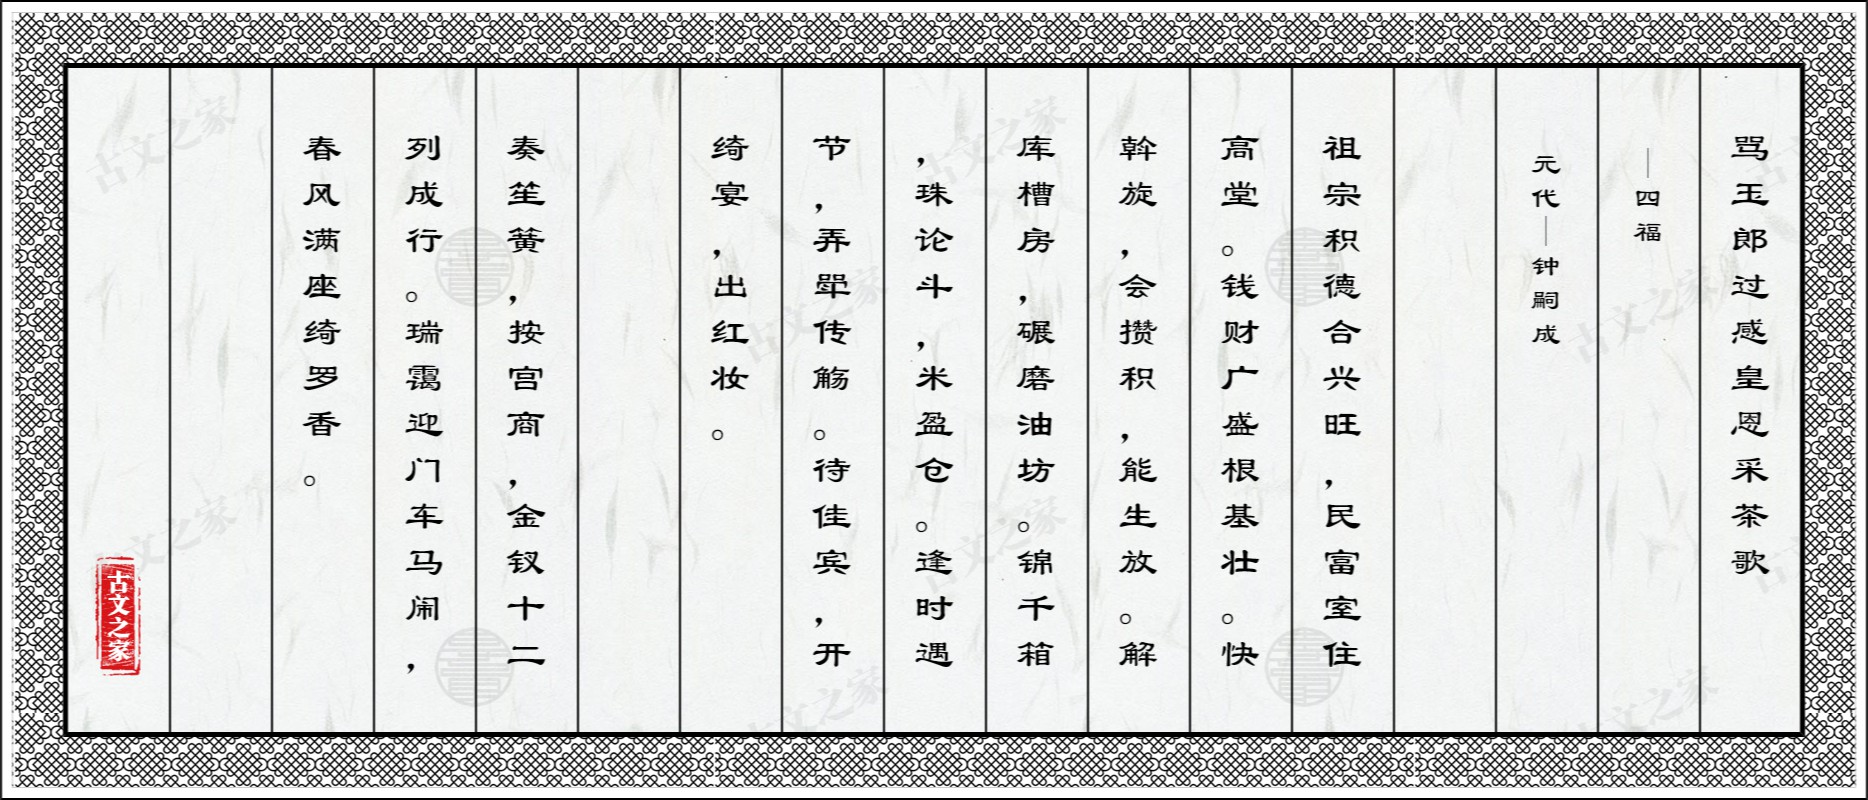 骂玉郎过感皇恩采茶歌
—四福
元代—钟嗣成
祖宗积德合兴旺,民富室住
高堂。钱财广盛根基壮。快
斡旋,会攒积,能生放。解
库槽房,碾磨油坊。锦千箱
,珠论斗,米盈仓。逢时遇
节,弄斝传觞。待佳宾,开
绮宴,出红妆。
奏笙簧,按宫商,金钗十二
列成行。瑞霭迎门车马闹,
春风满座绮罗香。
古文之家